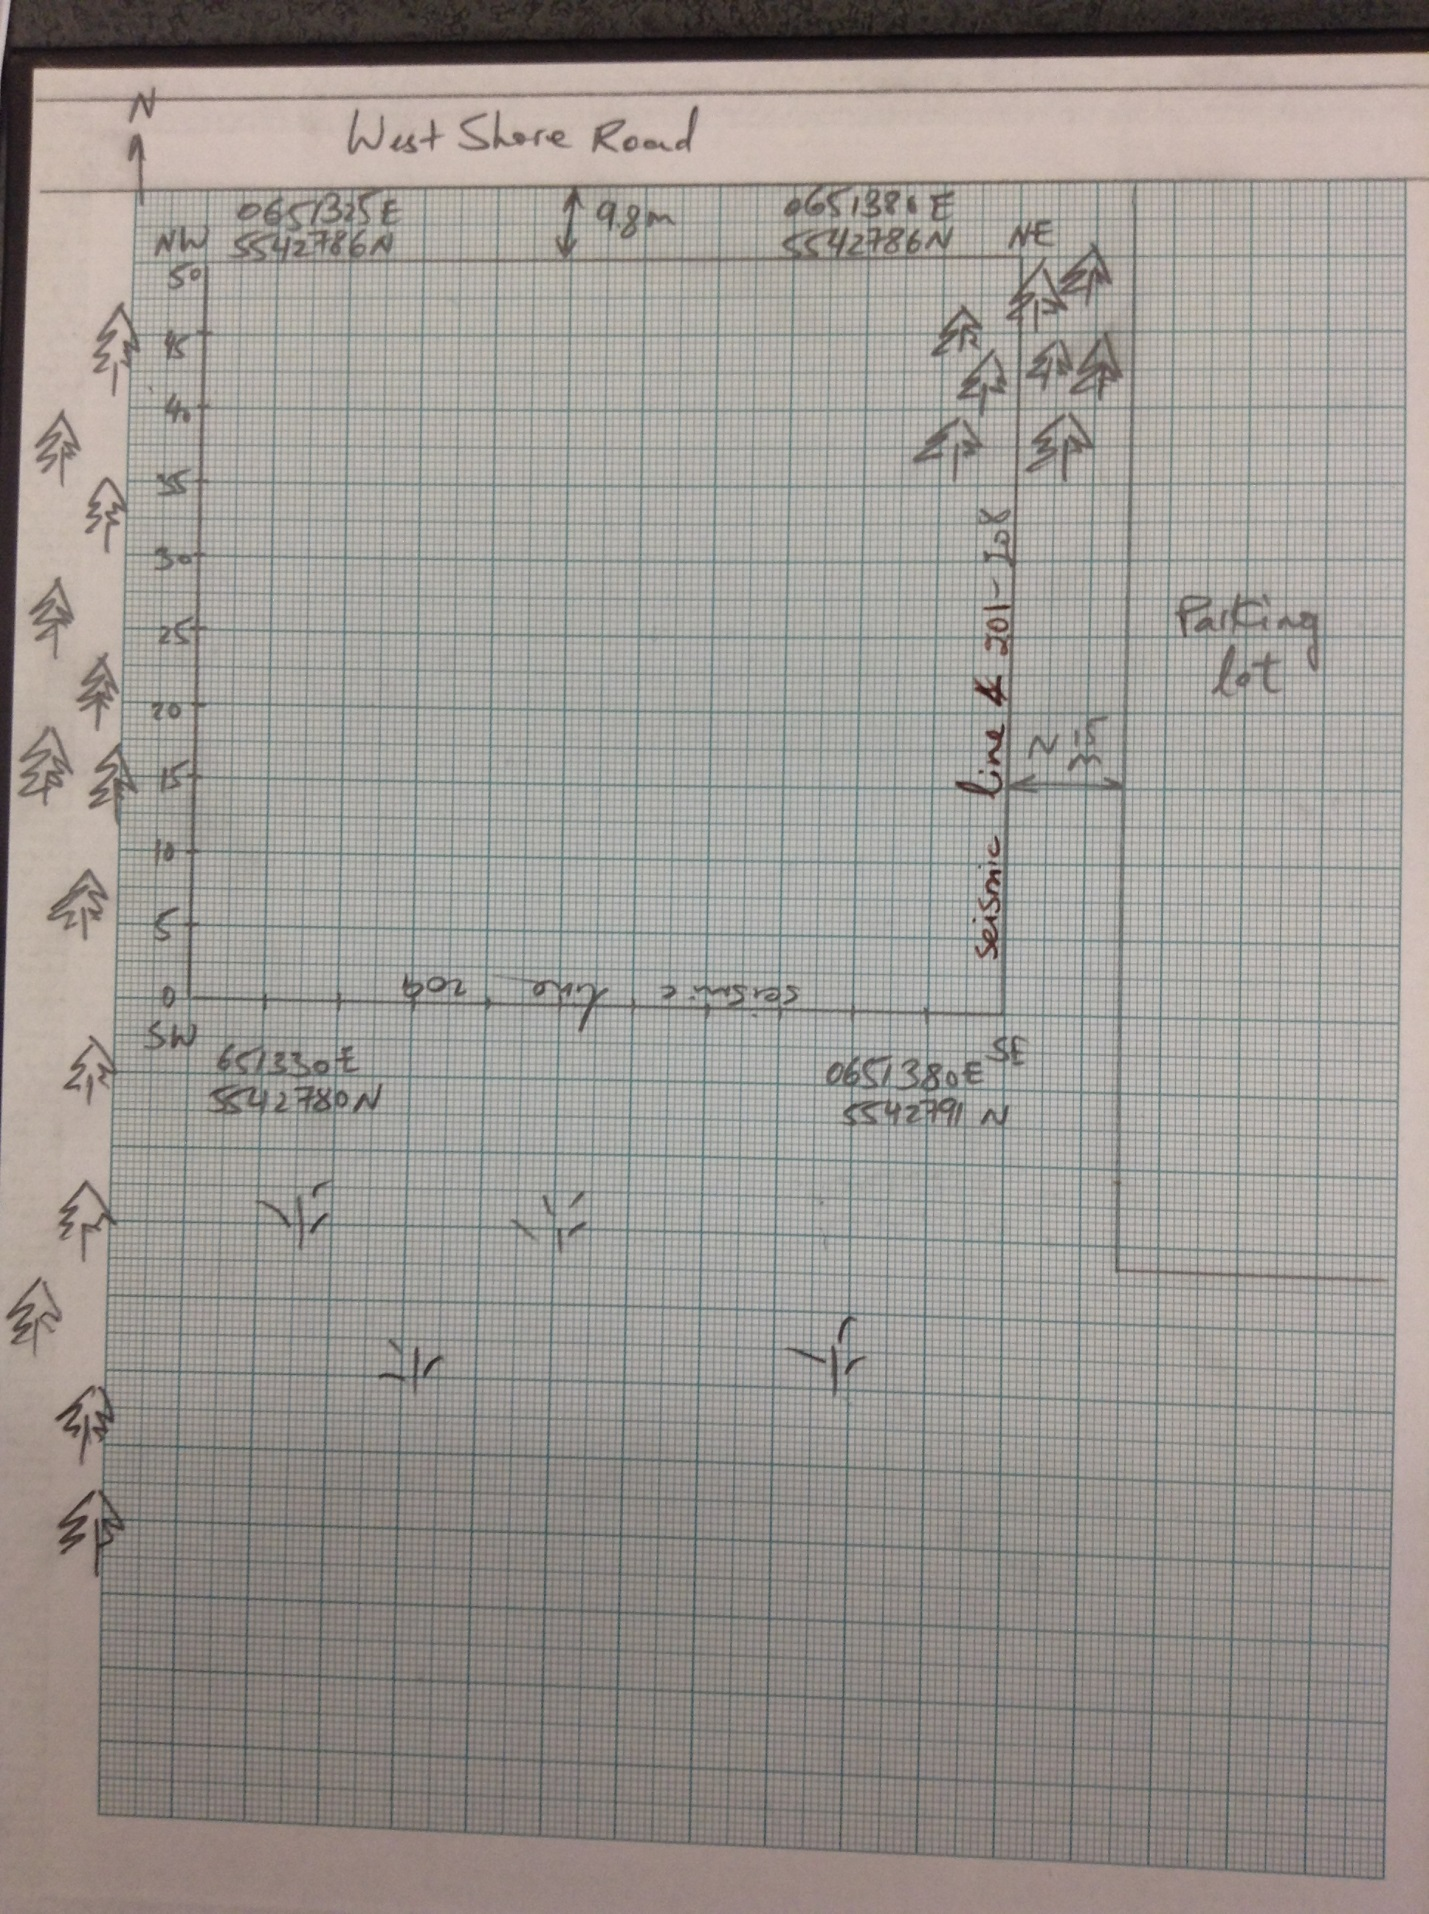 N
West Shore Road
0651325E
5542786N
9.8m
0651381E
5542786N
NW
NE
50
45
40
35
30
25
20
15
10
5
0
seismic line & 201-208
Parking
lot
seismic line 209
SW
651330E
5542780N
SE
0651380E
5542791 N